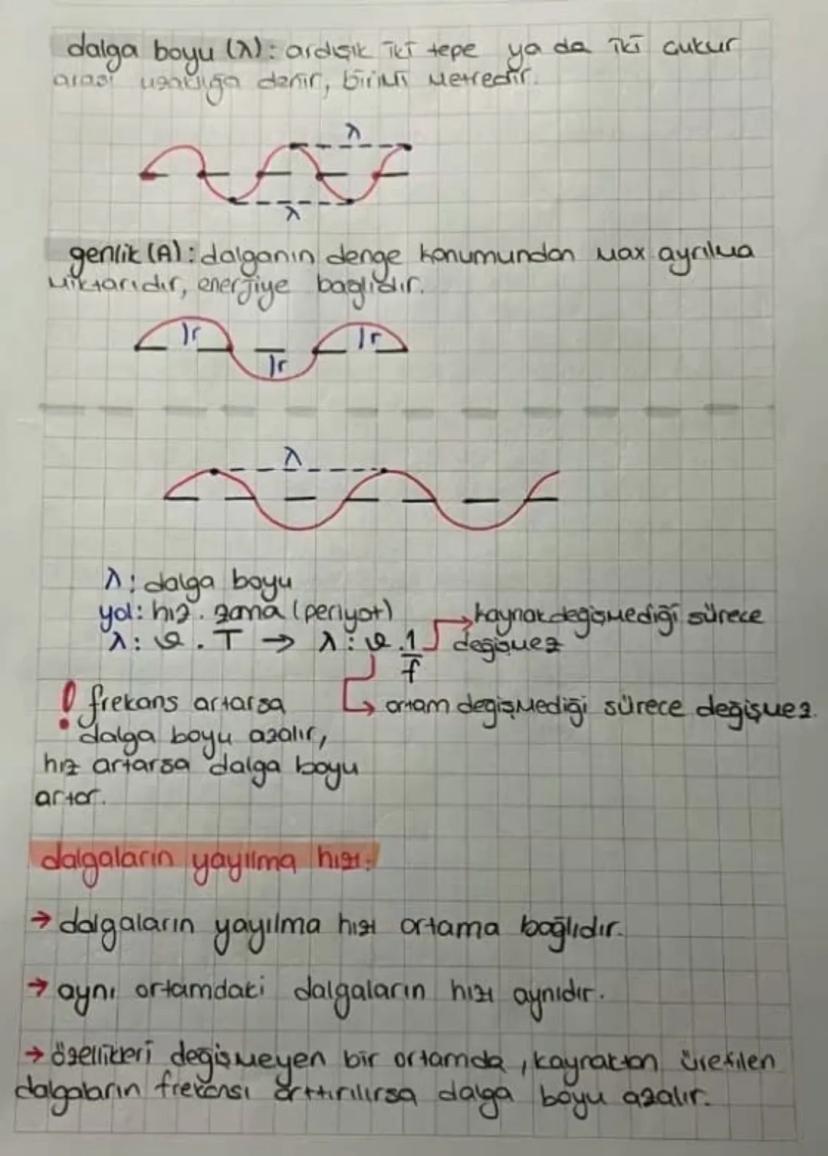 dalga boyu (λ): ardışık iki tepe ya da iki çukur
arası uzaklığa denir, birimi metredir.
λ
λ
genlik (A): dalganın denge konumundan max ayrılma
miktarıdır, enerjiye bağlıdır.
r r
r
λ
λ: dalga boyu
yol: hız . zama (periyot)
kaynak değişmediği sürece
λ: v . T → λ: v . 1/f
değişmez
! frekans artarsa
ortam değişmediği sürece değişmez.
dalga boyu azalır,
hız artarsa dalga boyu
artar.
dalgaların yayılma hızı:
→ dalgaların yayılma hızı ortama bağlıdır.
→ aynı ortamdaki dalgaların hızı aynıdır.
→ özellikleri değişmeyen bir ortamda, kaynaktan üretilen
dalgaların frekansı arttırılırsa dalga boyu azalır.